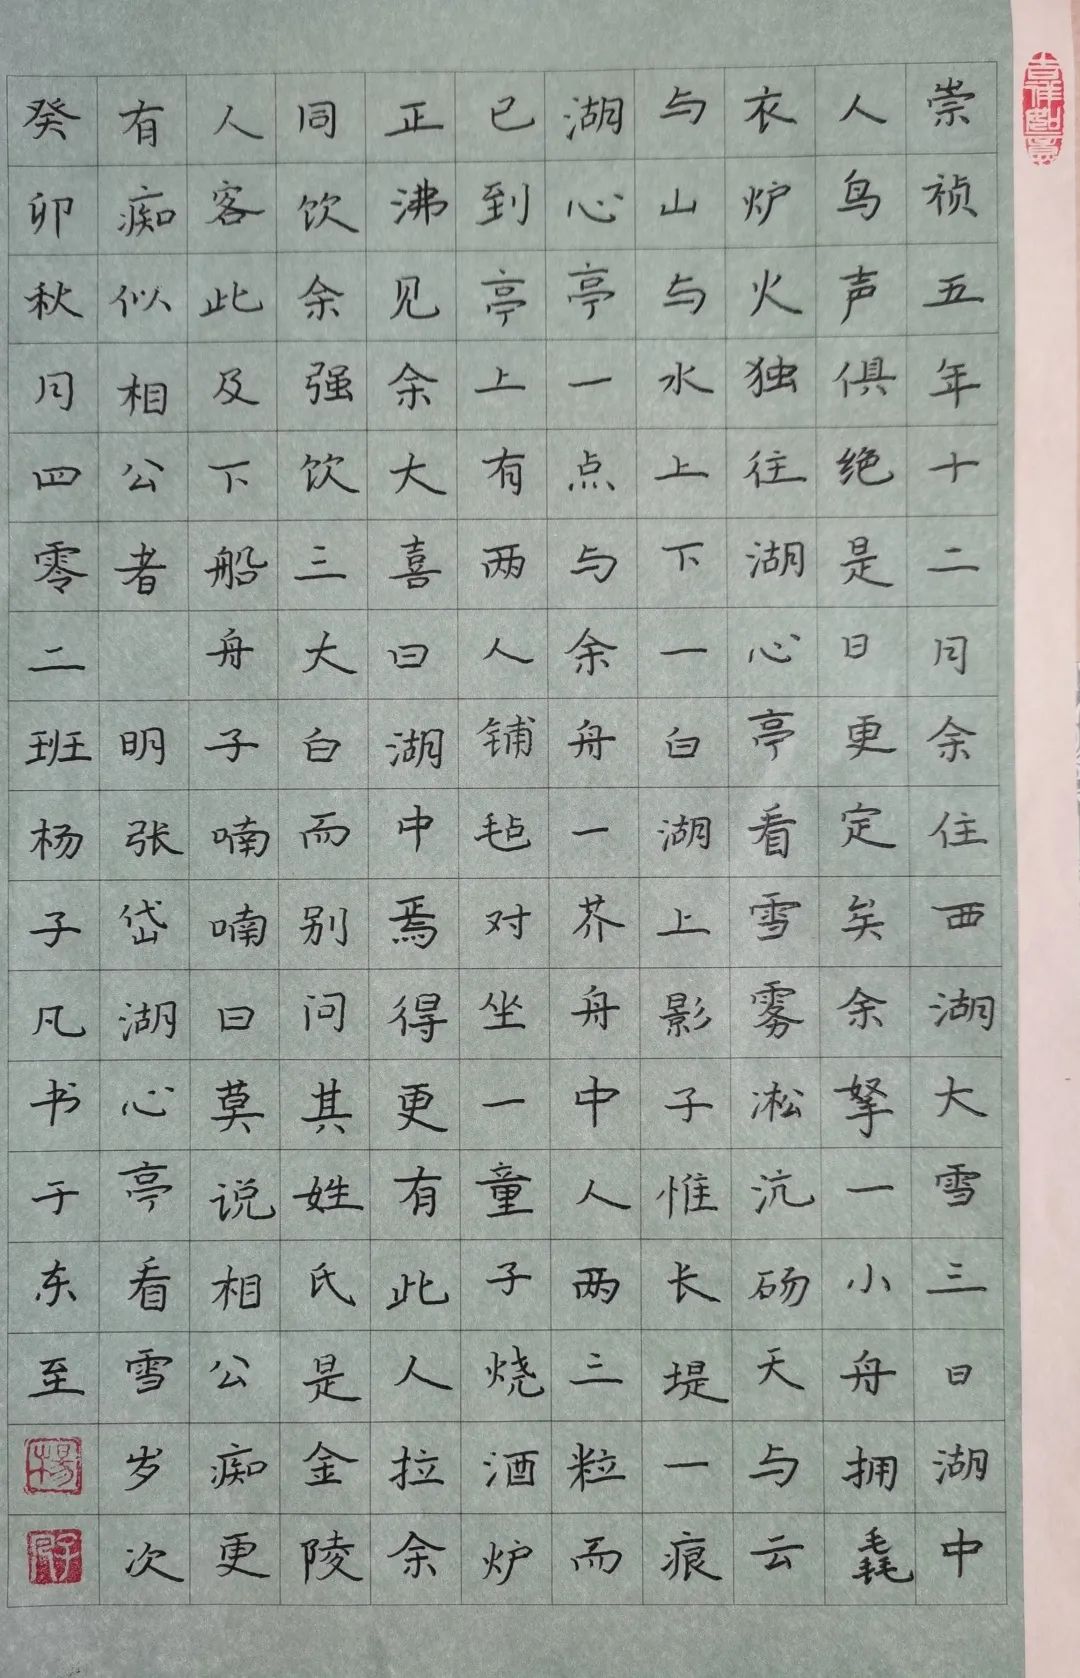 吉祥如意
崇祯五年十二月余住西湖大雪三日湖中
人鸟声俱绝是日更定矣余拏一小舟拥毳
衣炉火独往湖心亭看雪雾凇沆砀天与云
与山与水上下一白湖上影子惟长堤一痕
湖心亭一点与余舟一芥舟中人两三粒而
已到亭上有两人铺毡对坐一童子烧酒炉
正沸见余大喜曰湖中焉得更有此人拉余
同饮余强饮三大白而别问其姓氏是金陵
人客此及下船舟子喃喃曰莫说相公痴更
有痴似相公者 明张岱湖心亭看雪岁次
癸卯秋月四零二班杨子凡书于东至
楊